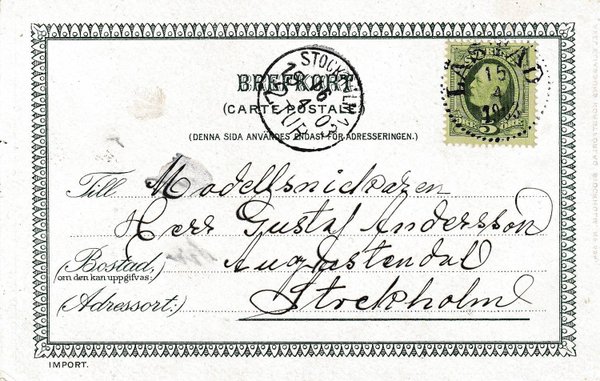 BREFKORT
(CARTE POSTALE)
(DENNA SIDA ANVÄNDES ENDAST FÖR ADRESSERINGEN.)
STOCKHOLM
15
4
5
Till Modellsnickaren
Herr Gustaf Andersson
(Bostad,
om den kan uppgifvas:)
Augustendal
Adressort:) Stockholm
IMPORT.